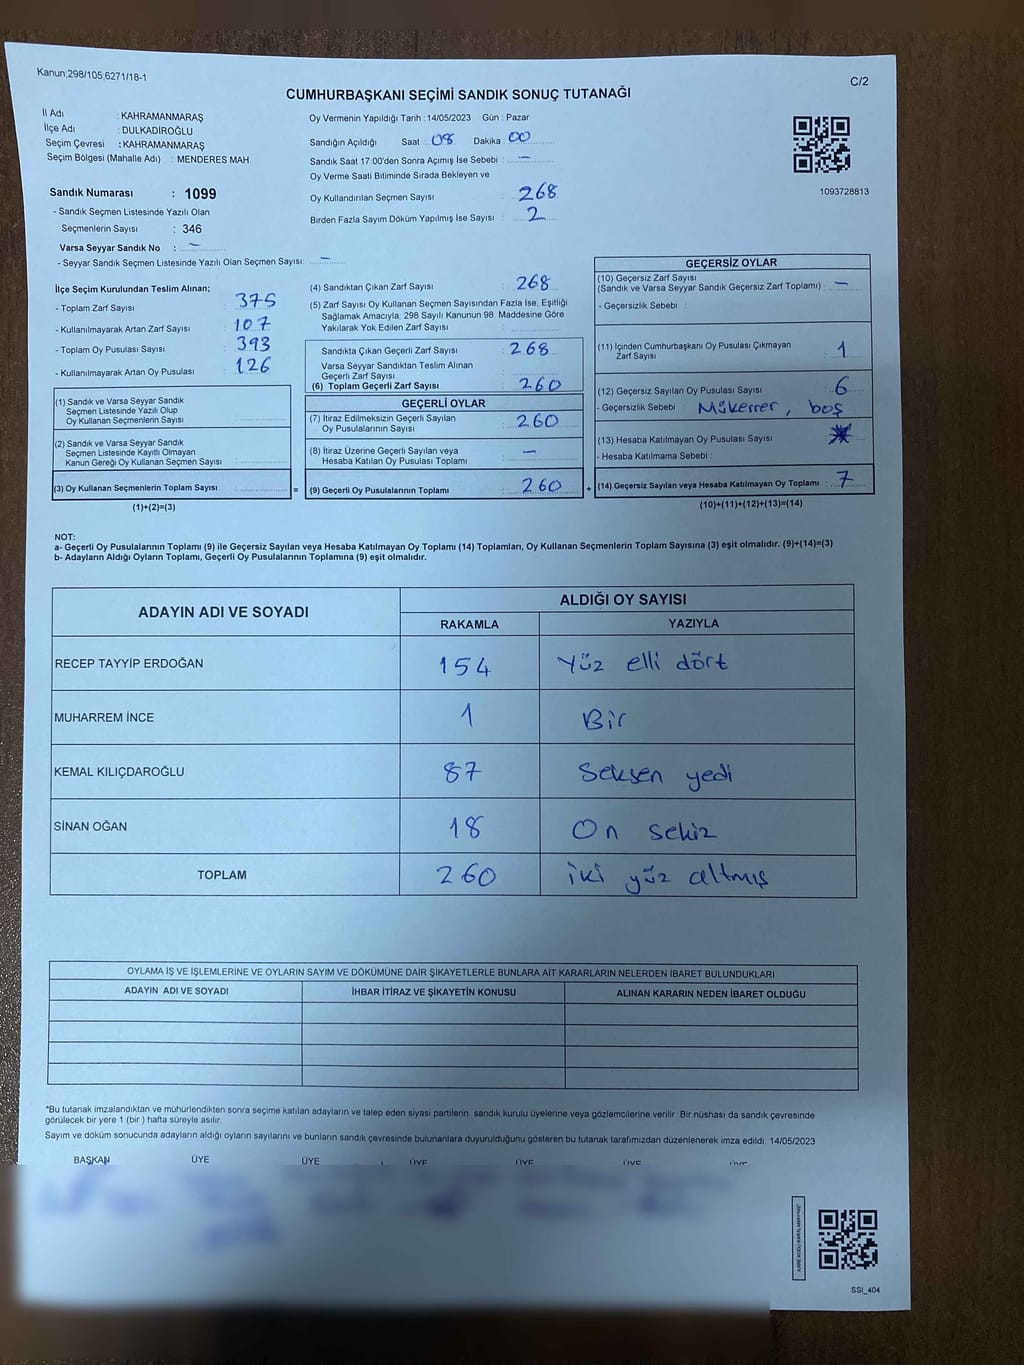 Kanun:298/105,6271/18-1
C/2
CUMHURBAŞKANI SEÇİMİ SANDIK SONUÇ TUTANAĞI
İl Adı : KAHRAMANMARAŞ
İlçe Adı : DULKADİROĞLU
Seçim Çevresi : KAHRAMANMARAŞ
Seçim Bölgesi (Mahalle Adı) : MENDERES MAH.
Sandık Numarası : 1099
- Sandık Seçmen Listesinde Yazılı Olan
Seçmenlerin Sayısı : 346
Varsa Seyyar Sandık No : —
- Seyyar Sandık Seçmen Listesinde Yazılı Olan Seçmen Sayısı: —
Oy Vermenin Yapıldığı Tarih : 14/05/2023 Gün : Pazar
Sandığın Açıldığı Saat : 08 Dakika : 00
Sandık Saat 17:00'den Sonra Açımış İse Sebebi : —
Oy Verme Saati Bitiminde Sırada Bekleyen ve
Oy Kullandırılan Seçmen Sayısı : 268
Birden Fazla Sayım Döküm Yapılmış İse Sayısı : 2
1093728813
İlçe Seçim Kurulundan Teslim Alınan;
- Toplam Zarf Sayısı : 375
- Kullanılmayarak Artan Zarf Sayısı : 107
- Toplam Oy Pusulası Sayısı : 393
- Kullanılmayarak Artan Oy Pusulası : 126
(1) Sandık ve Varsa Seyyar Sandık
Seçmen Listesinde Yazılı Olup
Oy Kullanan Seçmenlerin Sayısı :
(2) Sandık ve Varsa Seyyar Sandık
Seçmen Listesinde Kayıtlı Olmayan
Kanun Gereği Oy Kullanan Seçmen Sayısı :
(3) Oy Kullanan Seçmenlerin Toplam Sayısı :
(1)+(2)=(3)
(4) Sandıktan Çıkan Zarf Sayısı : 268
(5) Zarf Sayısı Oy Kullanan Seçmen Sayısından Fazla İse, Eşitliği
Sağlamak Amacıyla, 298 Sayılı Kanunun 98. Maddesine Göre
Yakılarak Yok Edilen Zarf Sayısı :
Sandıkta Çıkan Geçerli Zarf Sayısı : 268
Varsa Seyyar Sandıktan Teslim Alınan
Geçerli Zarf Sayısı :
(6) Toplam Geçerli Zarf Sayısı : 260
GEÇERLİ OYLAR
(7) İtiraz Edilmeksizin Geçerli Sayılan
Oy Pusulalarının Sayısı : 260
(8) İtiraz Üzerine Geçerli Sayılan veya
Hesaba Katılan Oy Pusulası Toplamı : —
= (9) Geçerli Oy Pusulalarının Toplamı : 260 +
GEÇERSİZ OYLAR
(10) Geçersiz Zarf Sayısı
(Sandık ve Varsa Seyyar Sandık Geçersiz Zarf Toplamı) : —
- Geçersizlik Sebebi :
(11) İçinden Cumhurbaşkanı Oy Pusulası Çıkmayan
Zarf Sayısı : 1
(12) Geçersiz Sayılan Oy Pusulası Sayısı : 6
- Geçersizlik Sebebi : Mükerrer, boş
(13) Hesaba Katılmayan Oy Pusulası Sayısı :
- Hesaba Katılmama Sebebi :
(14) Geçersiz Sayılan veya Hesaba Katılmayan Oy Toplamı : 7
(10)+(11)+(12)+(13)=(14)
NOT:
a- Geçerli Oy Pusulalarının Toplamı (9) ile Geçersiz Sayılan veya Hesaba Katılmayan Oy Toplamı (14) Toplamları, Oy Kullanan Seçmenlerin Toplam Sayısına (3) eşit olmalıdır. (9)+(14)=(3)
b- Adayların Aldığı Oyların Toplamı, Geçerli Oy Pusulalarının Toplamına (9) eşit olmalıdır.
ADAYIN ADI VE SOYADI
ALDIĞI OY SAYISI
RAKAMLA YAZIYLA
RECEP TAYYİP ERDOĞAN 154 Yüz elli dört
MUHARREM İNCE 1 Bir
KEMAL KILIÇDAROĞLU 87 Seksen yedi
SİNAN OĞAN 18 On sekiz
TOPLAM 260 iki yüz altmış
OYLAMA İŞ VE İŞLEMLERİNE VE OYLARIN SAYIM VE DÖKÜMÜNE DAİR ŞİKAYETLERLE BUNLARA AİT KARARLARIN NELERDEN İBARET BULUNDUKLARI
ADAYIN ADI VE SOYADI İHBAR İTİRAZ VE ŞİKAYETİN KONUSU ALINAN KARARIN NEDEN İBARET OLDUĞU
*Bu tutanak imzalandıktan ve mühürlendikten sonra seçime katılan adayların ve talep eden siyasi partilerin sandık kurulu üyelerine veya gözlemcilerine verilir. Bir nüshası da sandık çevresinde
görülecek bir yere 1 (bir) hafta süreyle asılır.
Sayım ve döküm sonucunda adayların aldığı oyların sayılarını ve bunların sandık çevresinde bulunanlara duyurulduğunu gösteren bu tutanak tarafımızdan düzenlenerek imza edildi. 14/05/2023
BAŞKAN ÜYE ÜYE ÜYE ÜYE ÜYE ÜYE
SSI_404